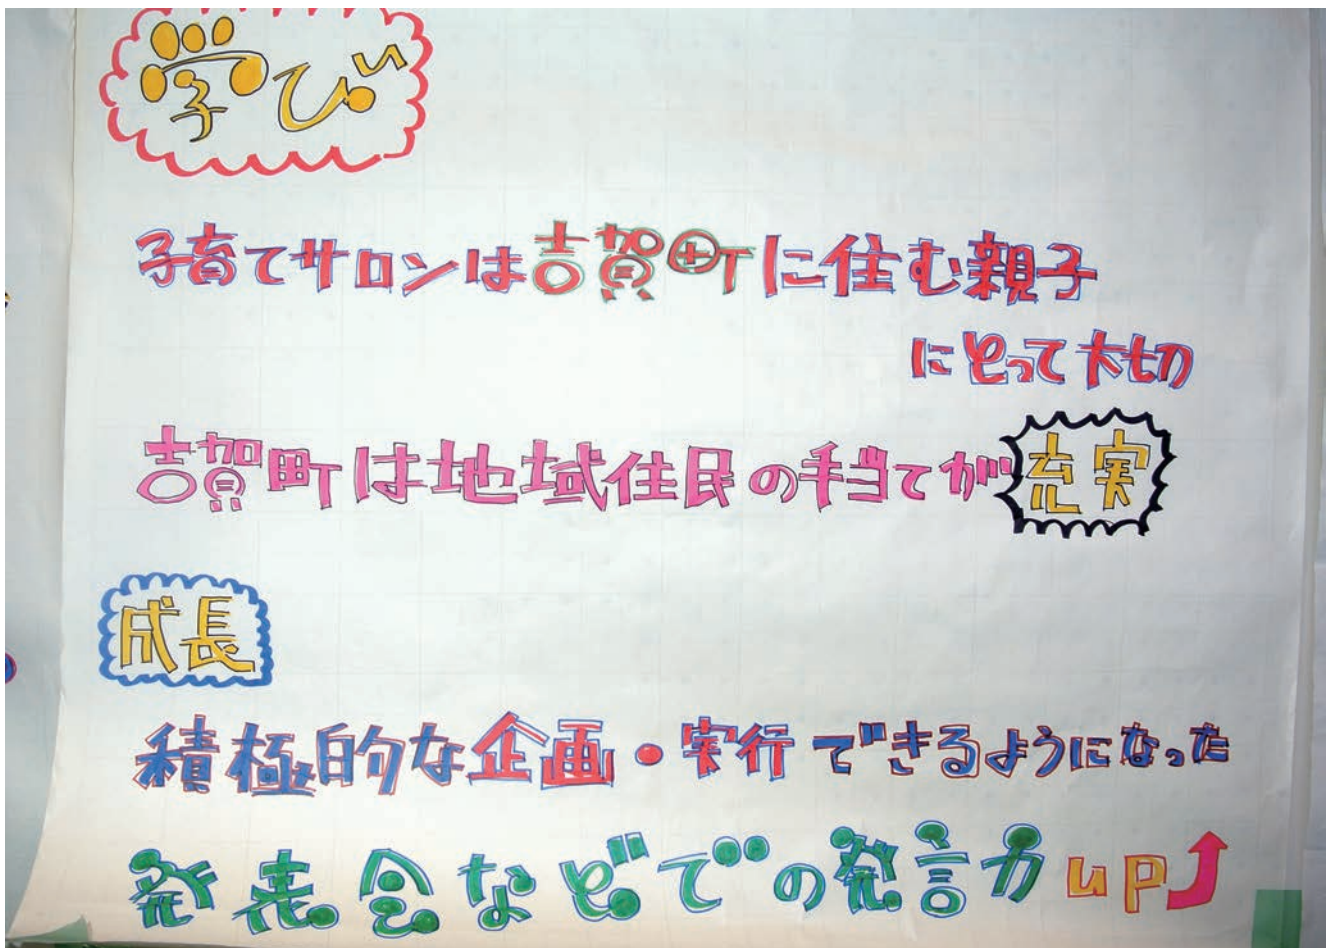 学び
子育てサロンは吉賀町に住む親子
にとって大切
吉賀町は地域住民の手当てが充実
成長
積極的な企画・実行できるようになった
発表会などでの発言力up